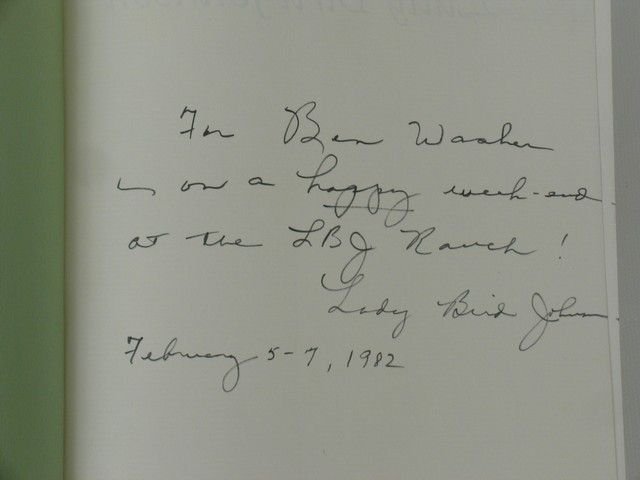 For Ben Washer
on a happy week-end
at the LBJ Ranch!
Lady Bird Johnson
February 5-7, 1982